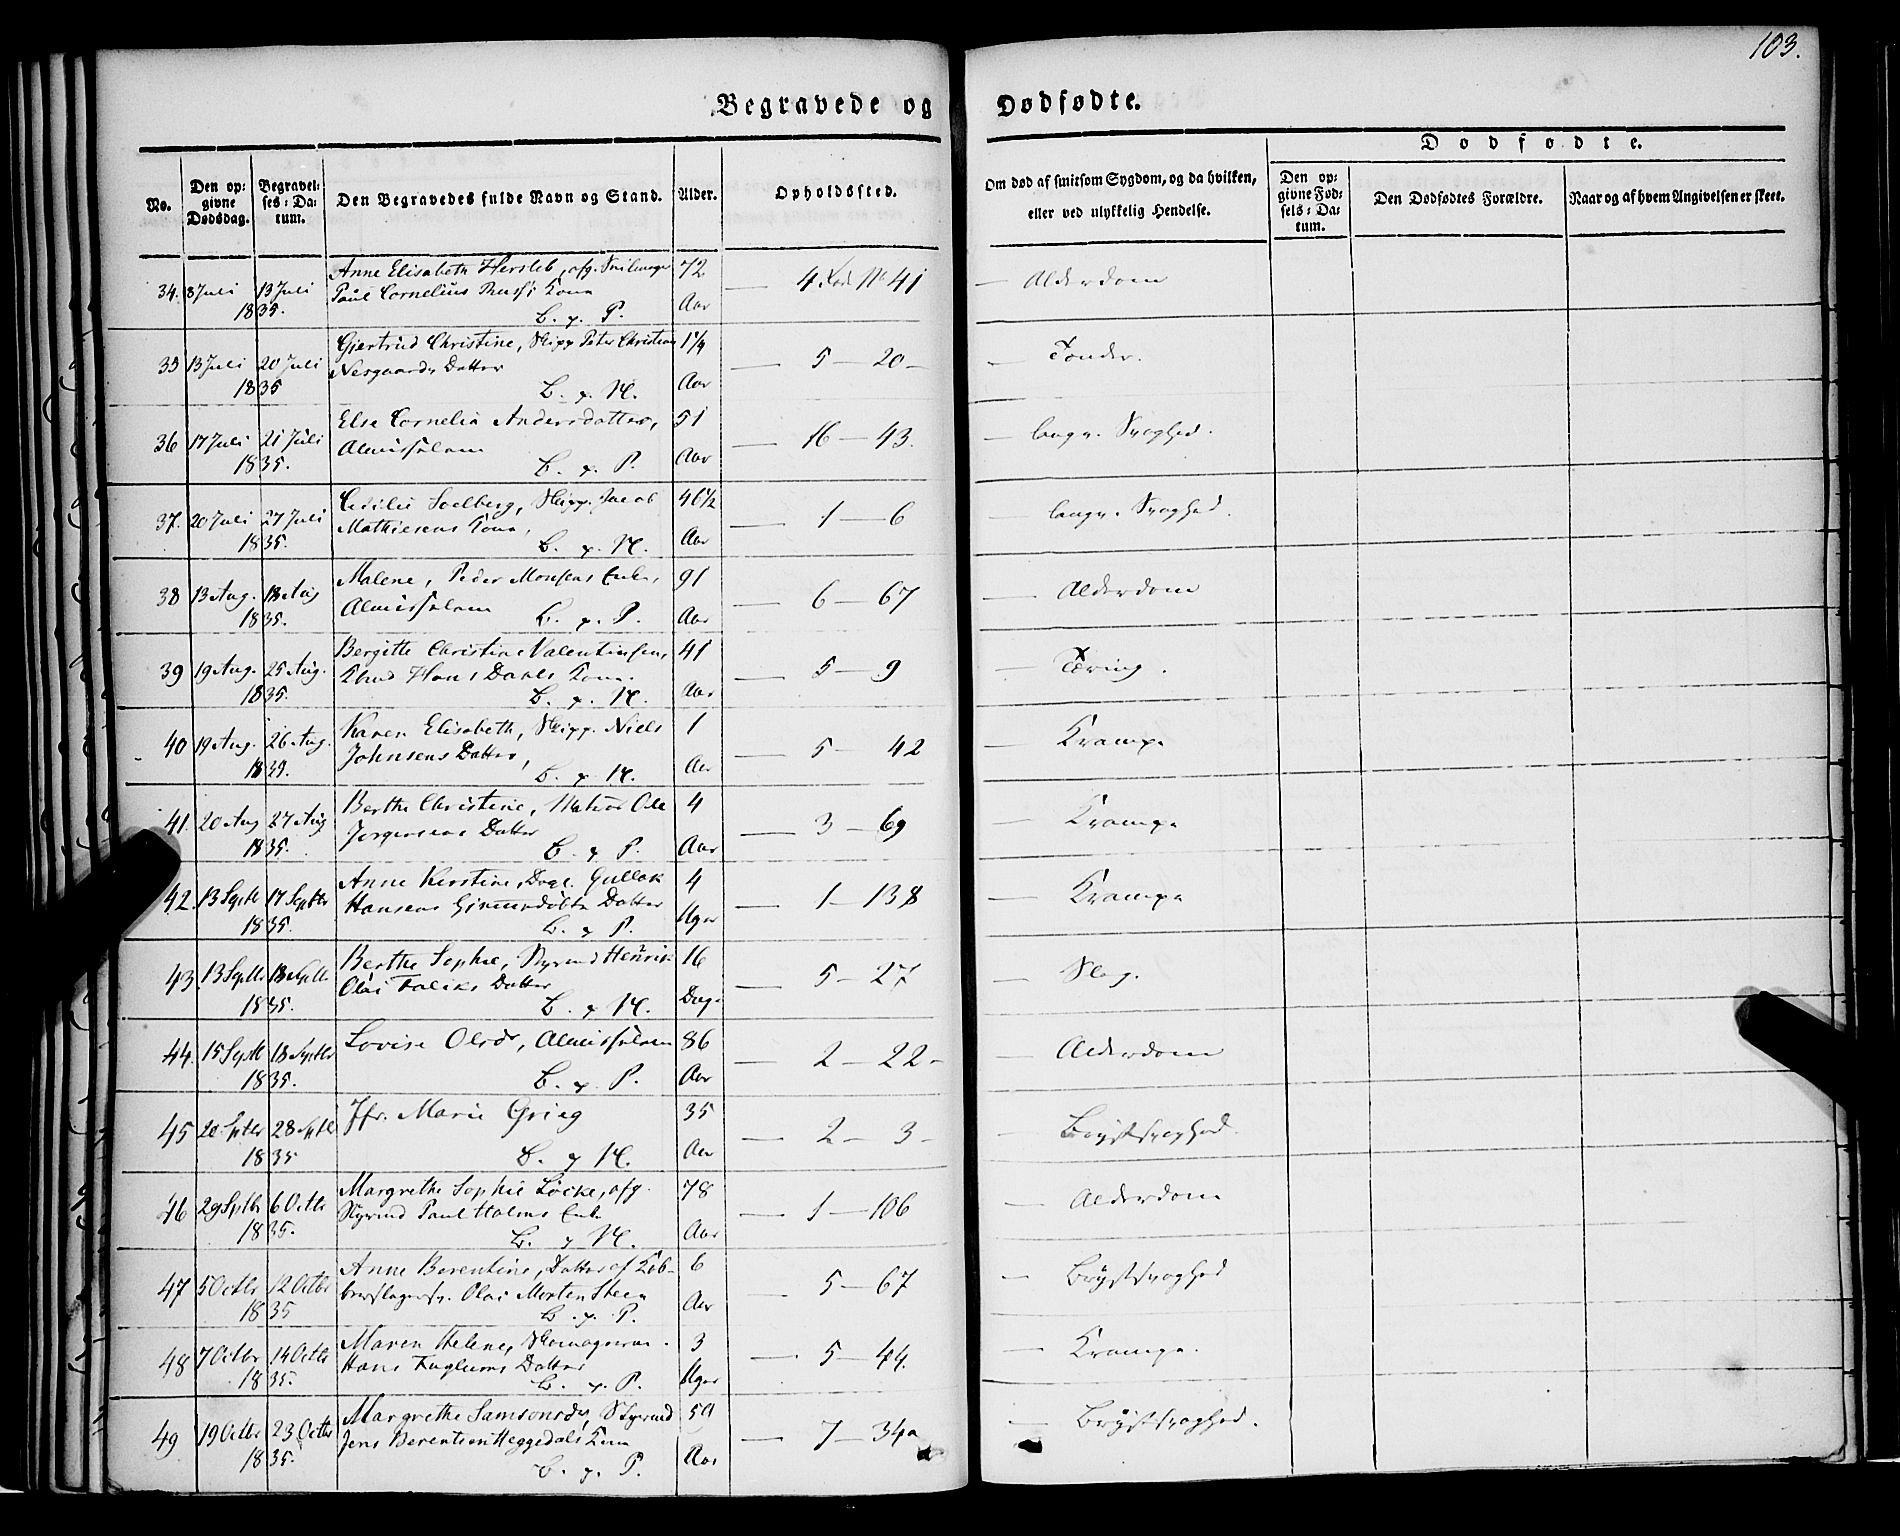 103.
Begravede og Dødfødte.
No.
Den op= givne Dødsdag.
Begravel= ses=Da= tum.
Den Begravedes fulde Navn og Stand.
Alder.
Opholdssted.
Om død af smitsom Sygdom, og da hvilken,
eller ved ulykkelig Hendelse.
Dødfødte.
Den op= givne Fød= sels=Da= tum.
Den Dødfødtes Forældre.
Naar og af hvem Angivelsen er skeet.
34. 8 Juli 13 Juli Anne Elisabeth Hersleb, afg. 72 — 4 No 41 — Alderdom
1835. Paul Cornelius Kone Aar
B. & P.
35 13 Juli 20 Juli Giertrud Christine, Skipp Peter Christian 1¼ — 5 — 20 — — Tænder.
1835 Nesgaards Datter Aar
B. & N.
36 17 Juli 21 Juli Else Cornelia Andersdatter, 51 — 16 — 43. — langv. Svaghed.
1835. Almisselem Aar
B. & P.
37. 20 Juli 27 Juli Cecilie Soelberg, Skipp. Jacob 46½ — 1 — 6 — langv. Svaghed.
1835. Mathiesens Kone, Aar
B. & N.
38 13 Aug. 18 Aug Malene, Peder Monsens Enke, 91 — 6 — 67 — Alderdom
1835. Almisselem Aar
B. & P.
39 19 Aug. 25 Aug. Bergitte Christine Valentinsen, 41 — 5 — 9 — Tæring.
1835. Hans Dahls Kone. Aar
B. & N.
40 19 Aug. 26 Aug. Karen Elisabeth, Skipp. Niels 1 — 5 — 42 — Krampe
1835. Johnsens Datter, Aar
B. & N.
41. 20 Aug 27 Aug Berthe Christine, Matros Ole 4 — 3 — 69 — Krampe
1835. Jørgensens Datter Aar
B. & P.
42. 13 Septbr 17 Septbr Anne Kirstine, Gullak 4 — 1 — 138 — Krampe
1835. Hansens Datter Uger
B. & P.
43 13 Septbr 18 Septbr Berthe Sophie, Styrmd Henrik 16 — 5 — 27 — Slag.
1835. Olai Falcks Datter Dage
B. & N.
44. 15 Septbr 18 Septbr Lovise Olsdr, Almisselem 86 — 2 — 22 — — Alderdom
1835. Aar
B. & P.
45 20 Septbr 28 Septbr Jfr. Marie Grieg 35 — 2 — 3 — — Brystsvaghed.
1835 Aar
B. & N.
46 29 Septbr 6 Octbr Margrethe Sophie Löcke, afg. 78 — 1 — 106 — Alderdom
1835. Styrmd Paul Holms Enke Aar
B. & N.
47 5 Octbr 12 Octbr Anne Berentine, Datter af Kob= 6 — 5 — 67 — Brystsvaghed
1835 berslagersv. Olai Morten Steen Aar
B. & P.
48 7 Octbr 14 Octbr Maren Helene, Skomagersv. 3 — 5 — 44. — Krampe.
1835. Hans Fuglums Datter Uger
B. & P.
49 19 Octbr 23 Octbr Margrethe Samsonsdr, Styrmd 59 — 7 — 34a — Brystsvaghed.
1835. Jens Berentsen Heggedals Kone Aar
B. & P.